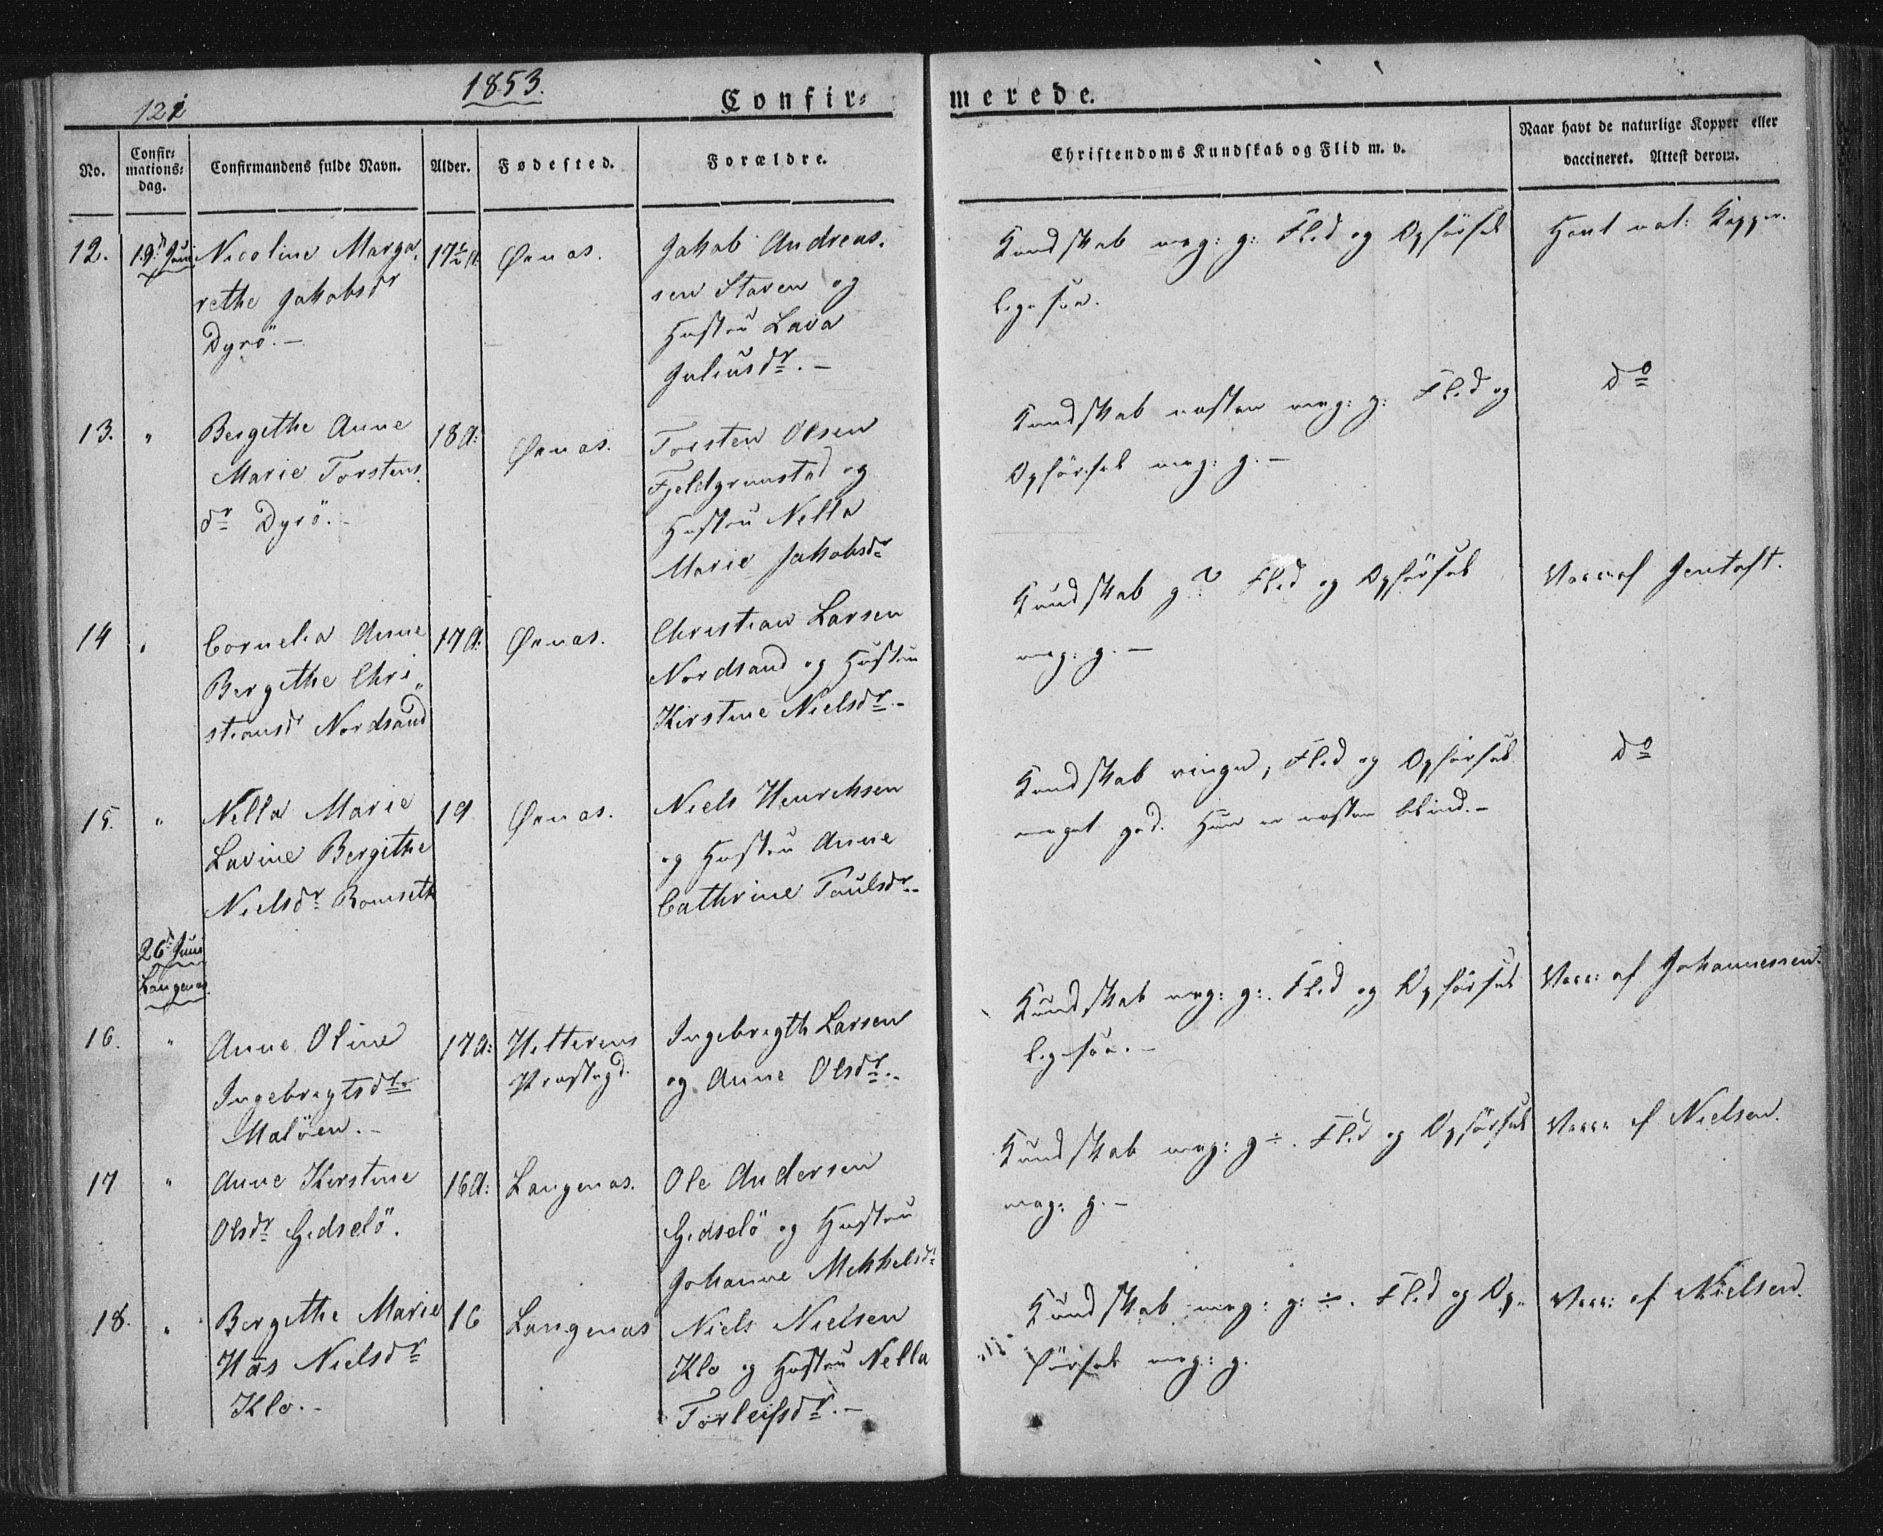 121
1853.
Confir- merede.
No.
Confir-
mations-
dag.
Confirmandens fulde Navn.
Alder.
Fødested.
Forældre.
Christendoms Kundskab og Flid m. v.
Naar havt de naturlige Kopper eller
vaccineret. Attest derom.
12.
19d Juni
Nicoline Marga-
rethe Jakobsdr
Dyrö. –
17½ A
Øxnæs.
Jakob Andreas-
sen Staven og
Hustru Lava
Juliusdr. –
Kundskab meg: g: Flid og Opförsel
ligesaa.
Havt nat: Kopper.
13.
"
Bergithe Anne
Marie Torstens
dr Dyrö. –
18 A:
Øxnæs.
Torsten Olsen
Fjeldgrimstad og
Hustru Nella
Marie Jakobsdr
Kundskab næsten meg: g: Flid og
Opförsel meg: g. –
do
14
"
Cornelia Anne
Bergithe Chri„
stiansdr Nordsand
17 A.
Øxnæs.
Christian Larsen
Nordsand og Hustru
Kirstine Nielsdr. –
Kundskab g? Flid og Opförsel
meg: g. –
Vacc: af Jentoft.
15.
"
Nella Marie
Lavine Bergithe
Nielsdr Romseth
19
Øxnæs.
Niels Henrichsen
og Hustru Anne
Cathrine Paulsdr. –
Kundskab ringe, Flid og Opförsel
meget god. Hun er næsten blind. –
do
26d Juni
Langenæs
16.
"
Anne Oline
Ingebrigtsdr
Malöen. –
17 A:
Hitterens
Præstegd.
Ingebrigth Larsen
og Anne Olsdr. –
Kundskab meg: g:. Flid og Opförsel
ligesaa. –
Vacc: af Johannessen.
17
"
Anne Kirstine
Olsdr Gidselö.
16 A:
Langenæs.
Ole Andersen
Gidselö og Hustru
Johanne Mikkelsdr
Kundskab meg: g ÷. Flid og Opförsel
meg: g. –
Vacc: af Nielsen.
18.
"
Bergithe Marie
Hås Nielsdr
Klo. –
16
Langenæs
Niels Nielsen
Klo og Hustru Nella
Torleifsdr. –
Kundskab meg: g: ÷. Flid og Op„
försel meg: g.
Vacc: af Nielsen.